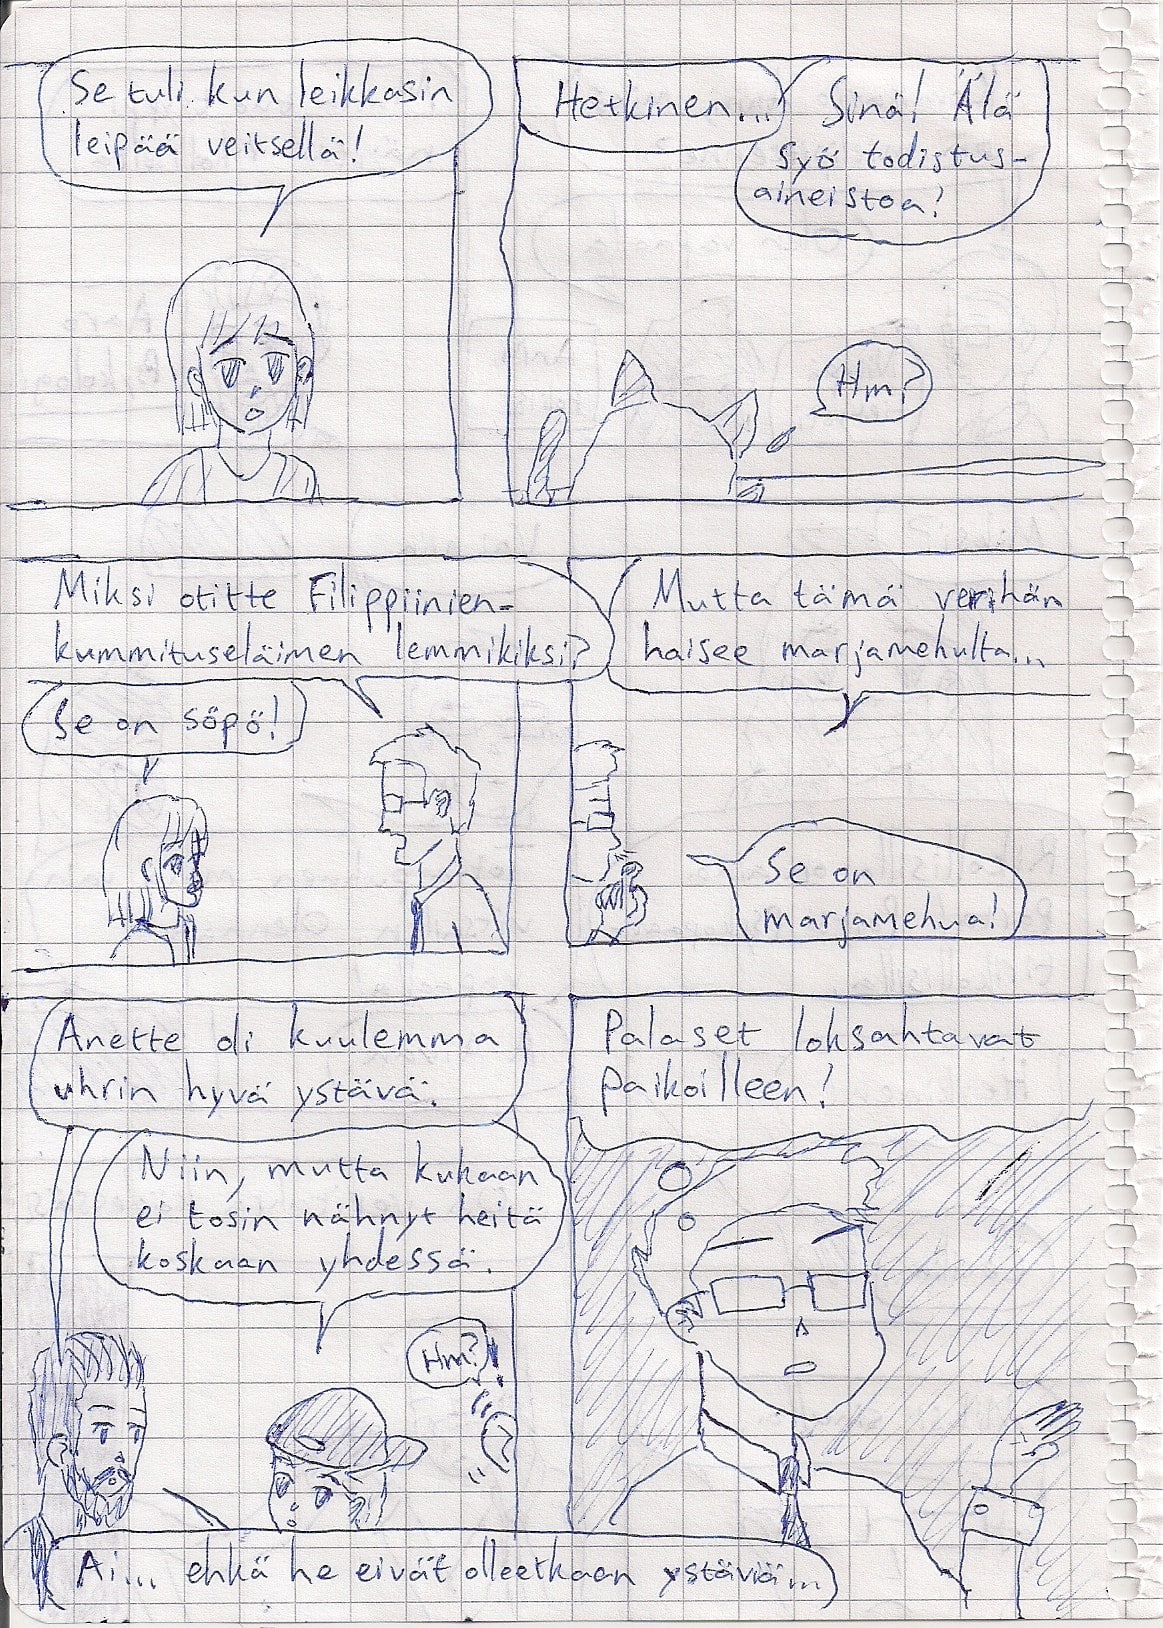 Se tuli kun leikkasin
leipää veitsellä!
Hetkinen...
Sinä! Älä
syö todistus-
aineistoa!
Hm?
Miksi otitte Filippiinien-
kummituseläimen lemmikiksi?
Se on söpö!
Mutta tämä verihän
haisee marjamehulta...
Se on
marjamehua!
Anette oli kuulemma
uhrin hyvä ystävä.
Niin, mutta kukaan
ei tosin nähnyt heitä
koskaan yhdessä.
Hm?
Ai... ehkä he eivät olleetkaan ystäviä...
Palaset loksahtavat
paikoilleen!